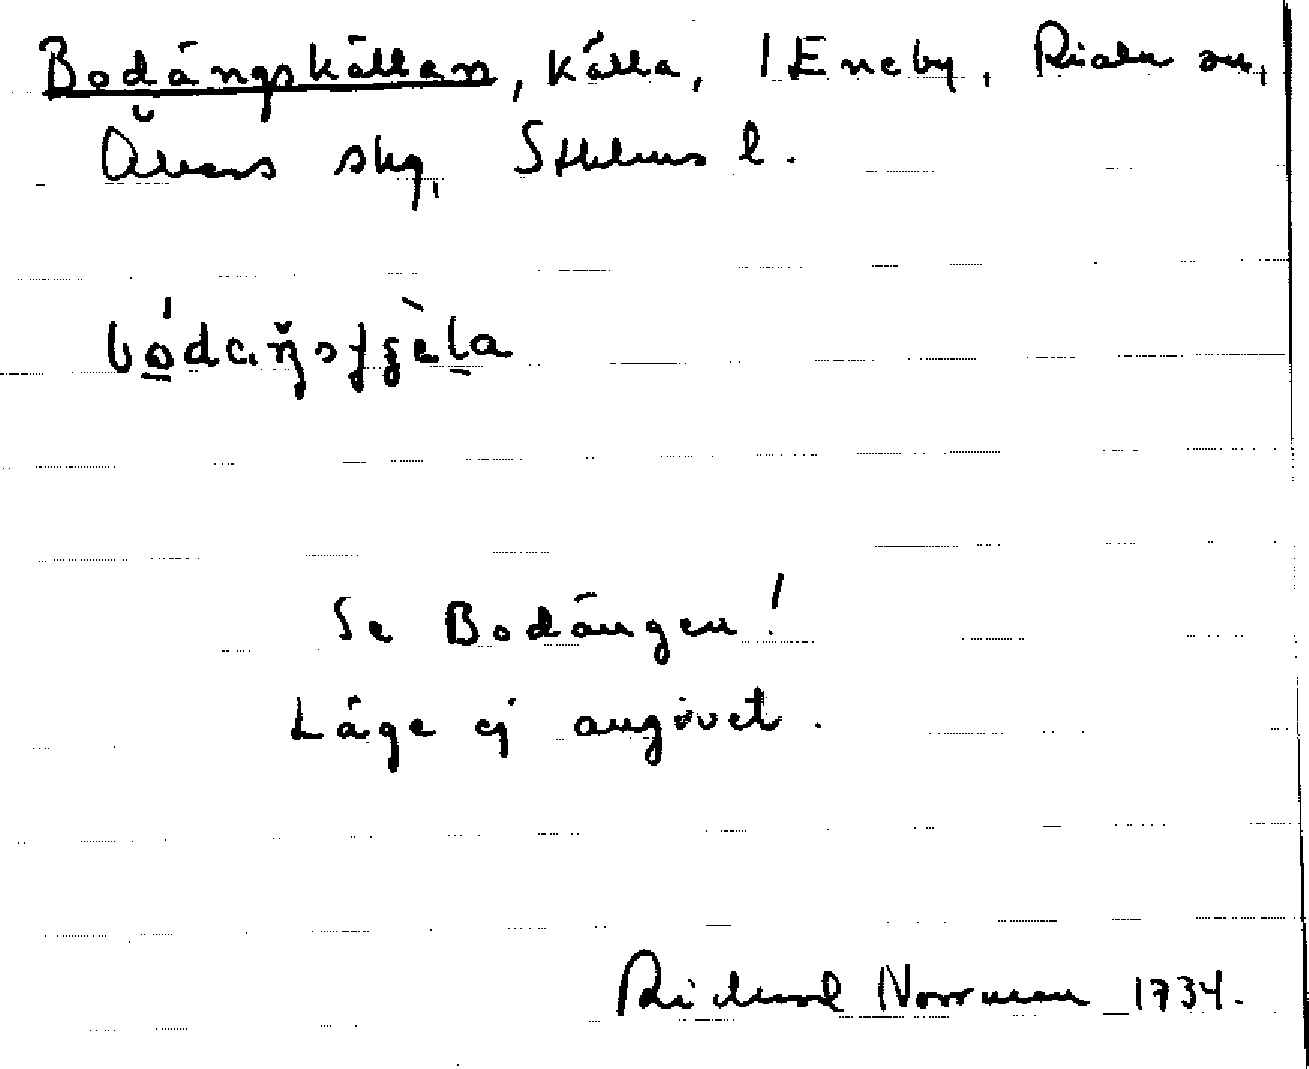 Bodängskällan, källa, 1 Eneby, Riala sn,
Åkers skg, Sthlms l.
Se Bodängen!
Läge ej angivet.
Richard Norrman 1934.